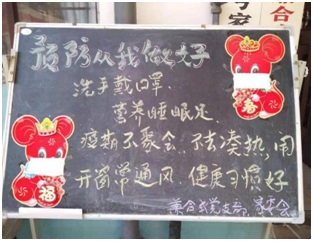 预防从我做好
洗手戴口罩
营养睡眠足
疫期不聚会,不去凑热闹
开窗常通风,健康习惯好
党支部
福
春